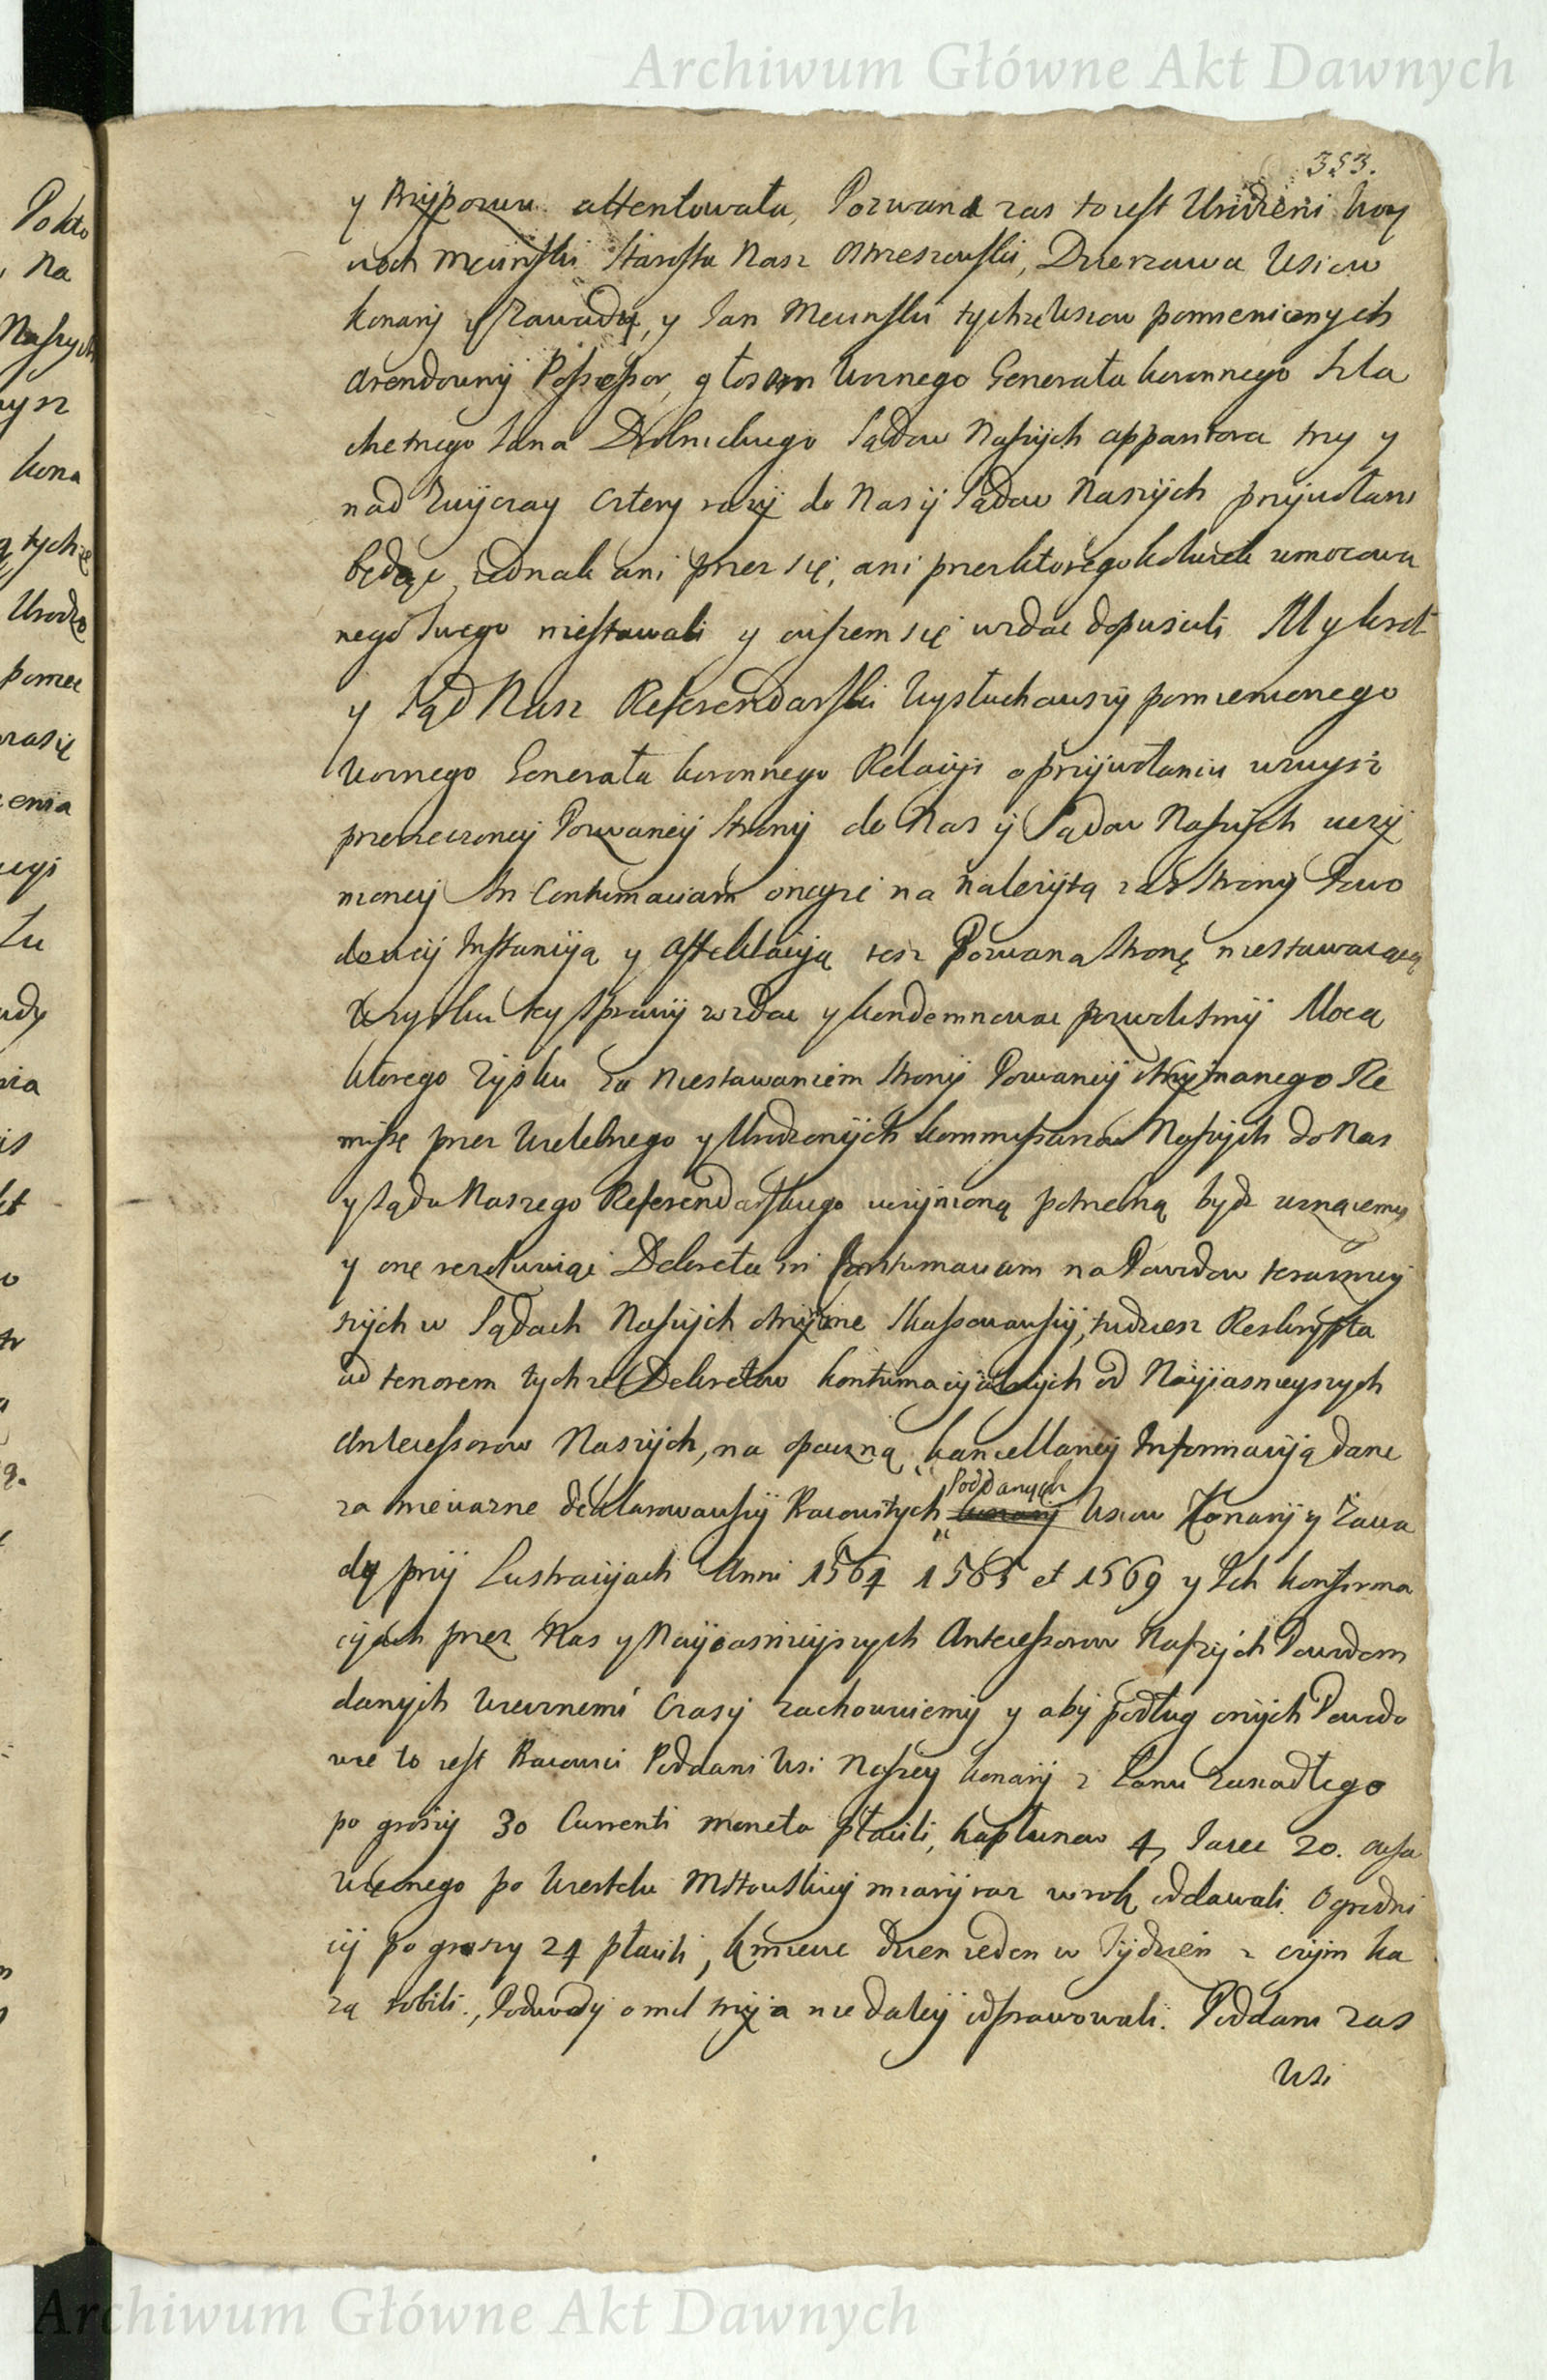 Archiwum Główne Akt Dawnych
353.
y Przypozwu attentowała, Pozwana zas to iest Urodzeni Woy
ciech Męcinski Starosta Nasz Ostrzeszowski, Dzierzawca Wsiow
Konary y Zawady, y Jan Mecinski tychze Wsiow pomienionych
Arendowny Possessor, głosem Woznego Generała Koronnego Szla
chetnego Jana Sądow Naszych apparitora trzy y
nad Zwyczay cztery razy do Nas y Sądow Naszych przywołani
będąc, iednak ani przez się, ani przez ktoregokolwiek umocowa
nego Swego niestawali y owszem się wzdac dopuscili My Krol
y Sąd Nasz Referendarski Wysłuchawszy pomienionego
Woznego Generała Koronnego Relacyi o przywołaniu wzwysz
przerzeczoney Pozwaney Strony do Nas y Sądow Naszych uczy
nioney In Contumaciam oneyze na nalezytą zas Strony Powo
dowey Instancyją y Affektacyją tesz Pozwaną Stronę niestawaiącą
W zysku tey Sprawy wzdac y kondemnowac pozwolismy Mocą
ktorego Zysku za niestawaniem Strony Pozwaney otrzymanego Re
missę przez Wielebnego y Urodzonych Kommissarzow Naszych do Nas
y Sądu Naszego Referendarskiego uczynioną potrzebną bydz uznaiemy
y onę rezolwuiąc Dekreta in Contumaciam na Powodow terazniey
szych w Sądach Naszych otrzymane skassowawszy, tudziesz Reskrypta
ad tenorem tychze Dekretow kontumacyalnych od Nayiasnieyszych
Antecessorow Naszych, na opaczną Kancellaryi Informacyją dane
za niewazne deklarowawszy Pracowitych Poddanych Wsiow Konary y Zawa
dy przy Lustracyjach Anni 1564 1565 et 1569 y Ich Konfirma
cyjach przez Nas y Nayiasnieyszych Antecessorow Naszych Powodom
danych Wiecznemi Czasy zachowuiemy y aby podług onych Powodo
wie to iest Pracowici Poddani Wsi Naszey Konary z Łanu Zasiadłego
po groszy 30 Currenti moneta płacili, kapłunow 4, Jaiec 20. owsa
Wiecznego po Wiertelu Mstowskiey miary raz w rok oddawali. Ogrodni
cy po groszy 24 płacili, Kmiecie dzien ieden w Tydzien z czym ka
zą robili., Podwody o mil trzy a nie daley odprawowali. Poddani zas
Wsi
Archiwum Główne Akt Dawnych